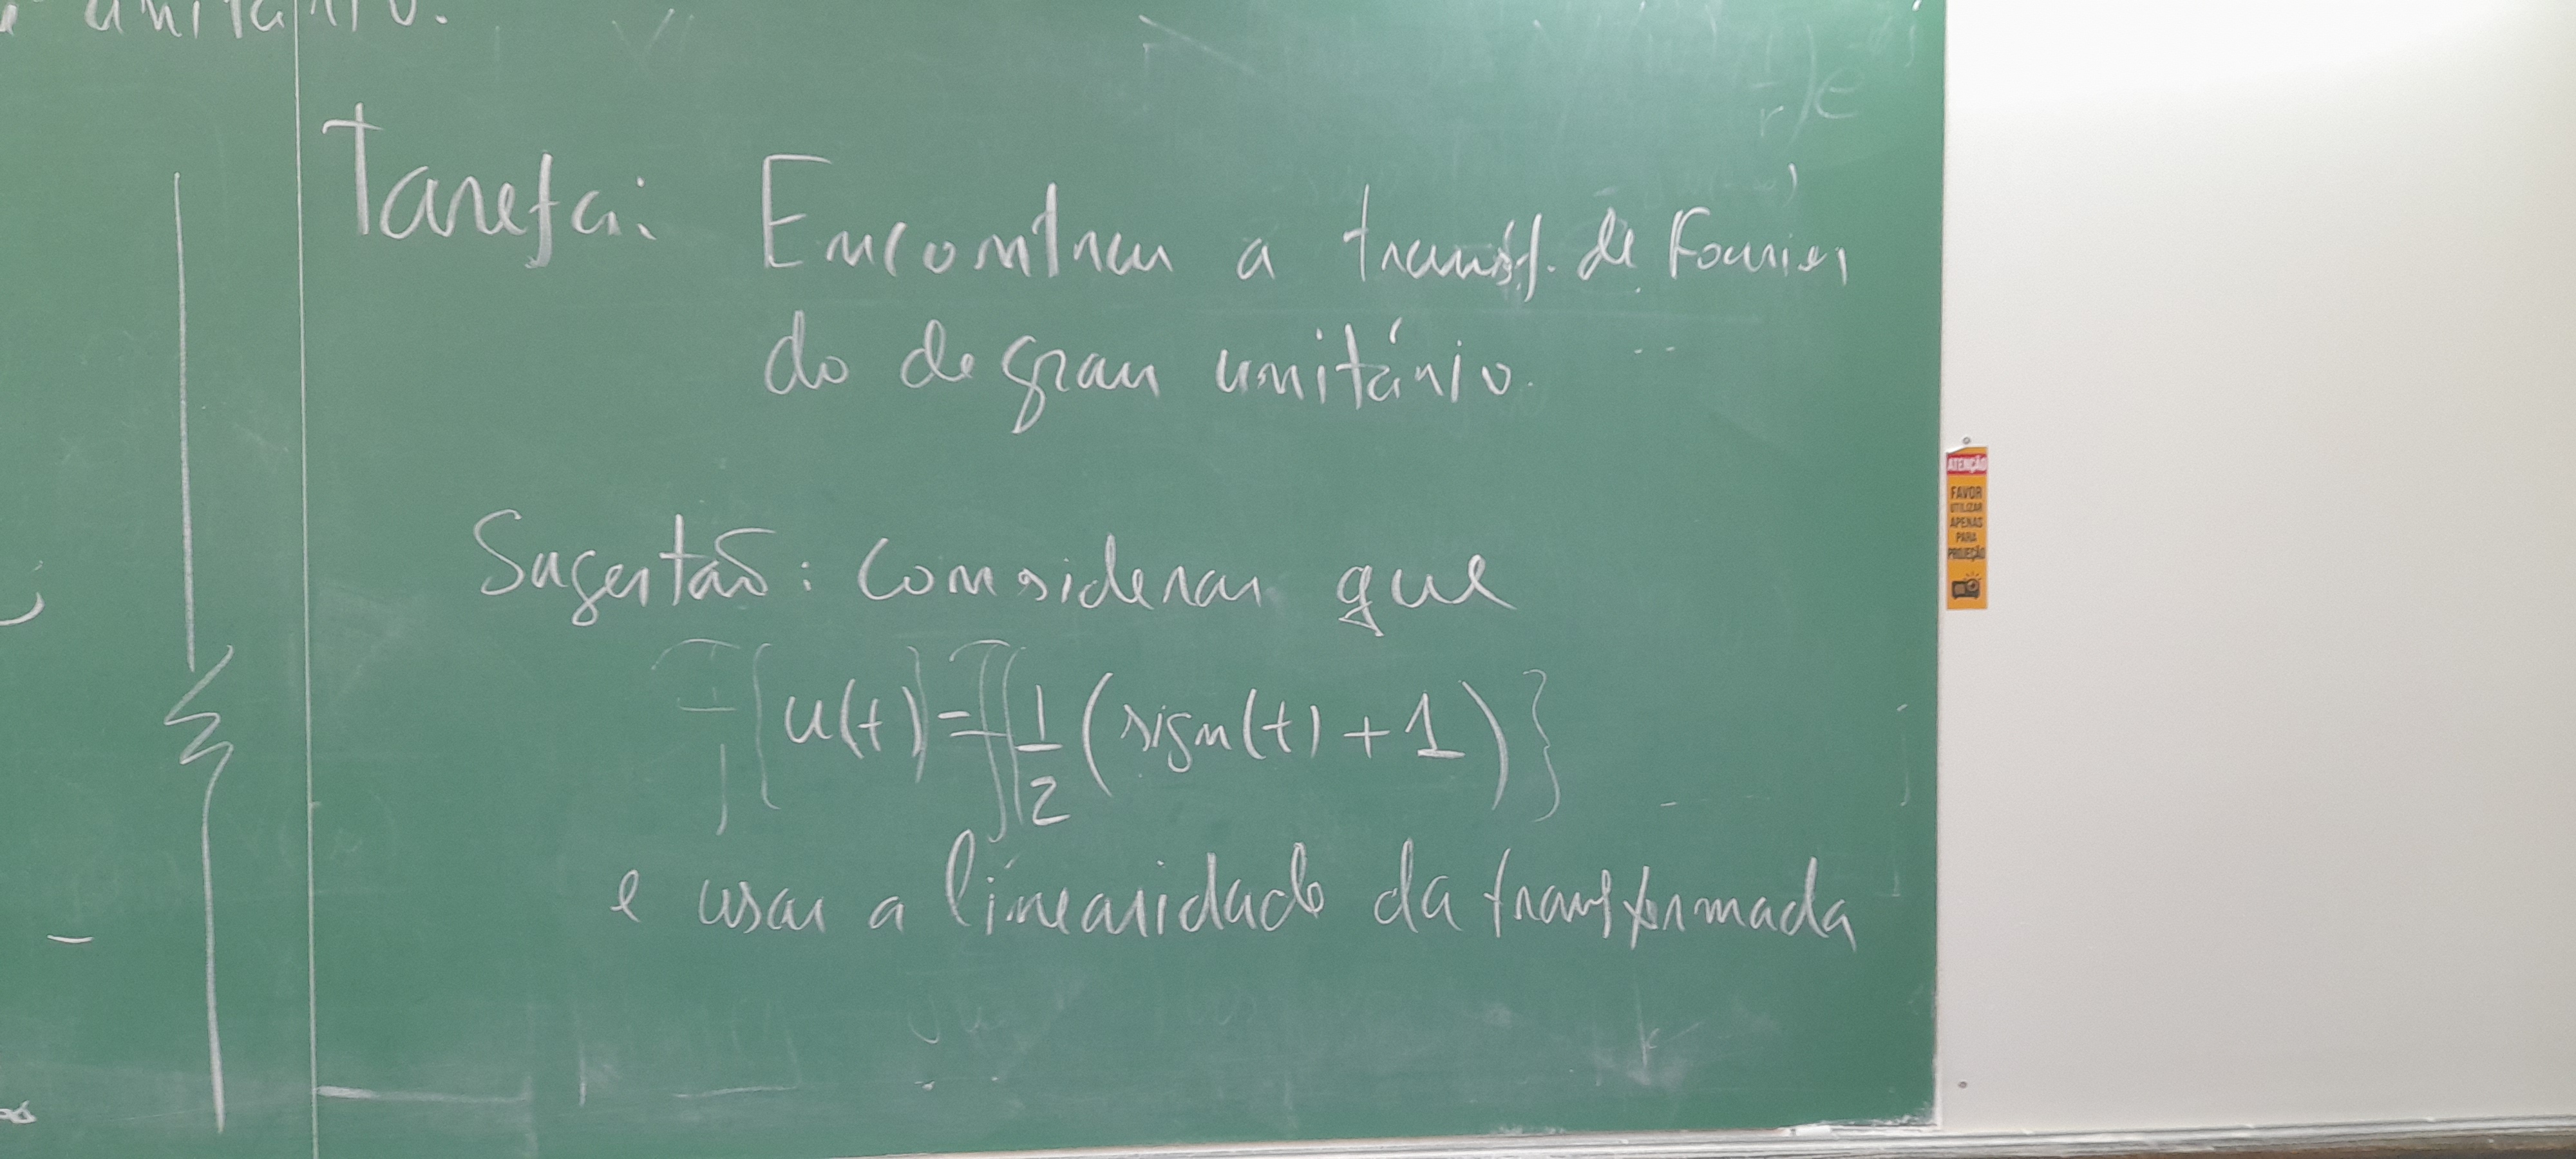 unitário.
Tarefa: Encontrar a transf. de Fourier
do degrau unitário.
Sugestão: Considerar que
F{u(t)} = F{1/2 (sign(t) + 1)}
e usar a linearidade da transformada
ATENÇÃO
FAVOR
UTILIZAR
APENAS
PARA
PROJEÇÃO